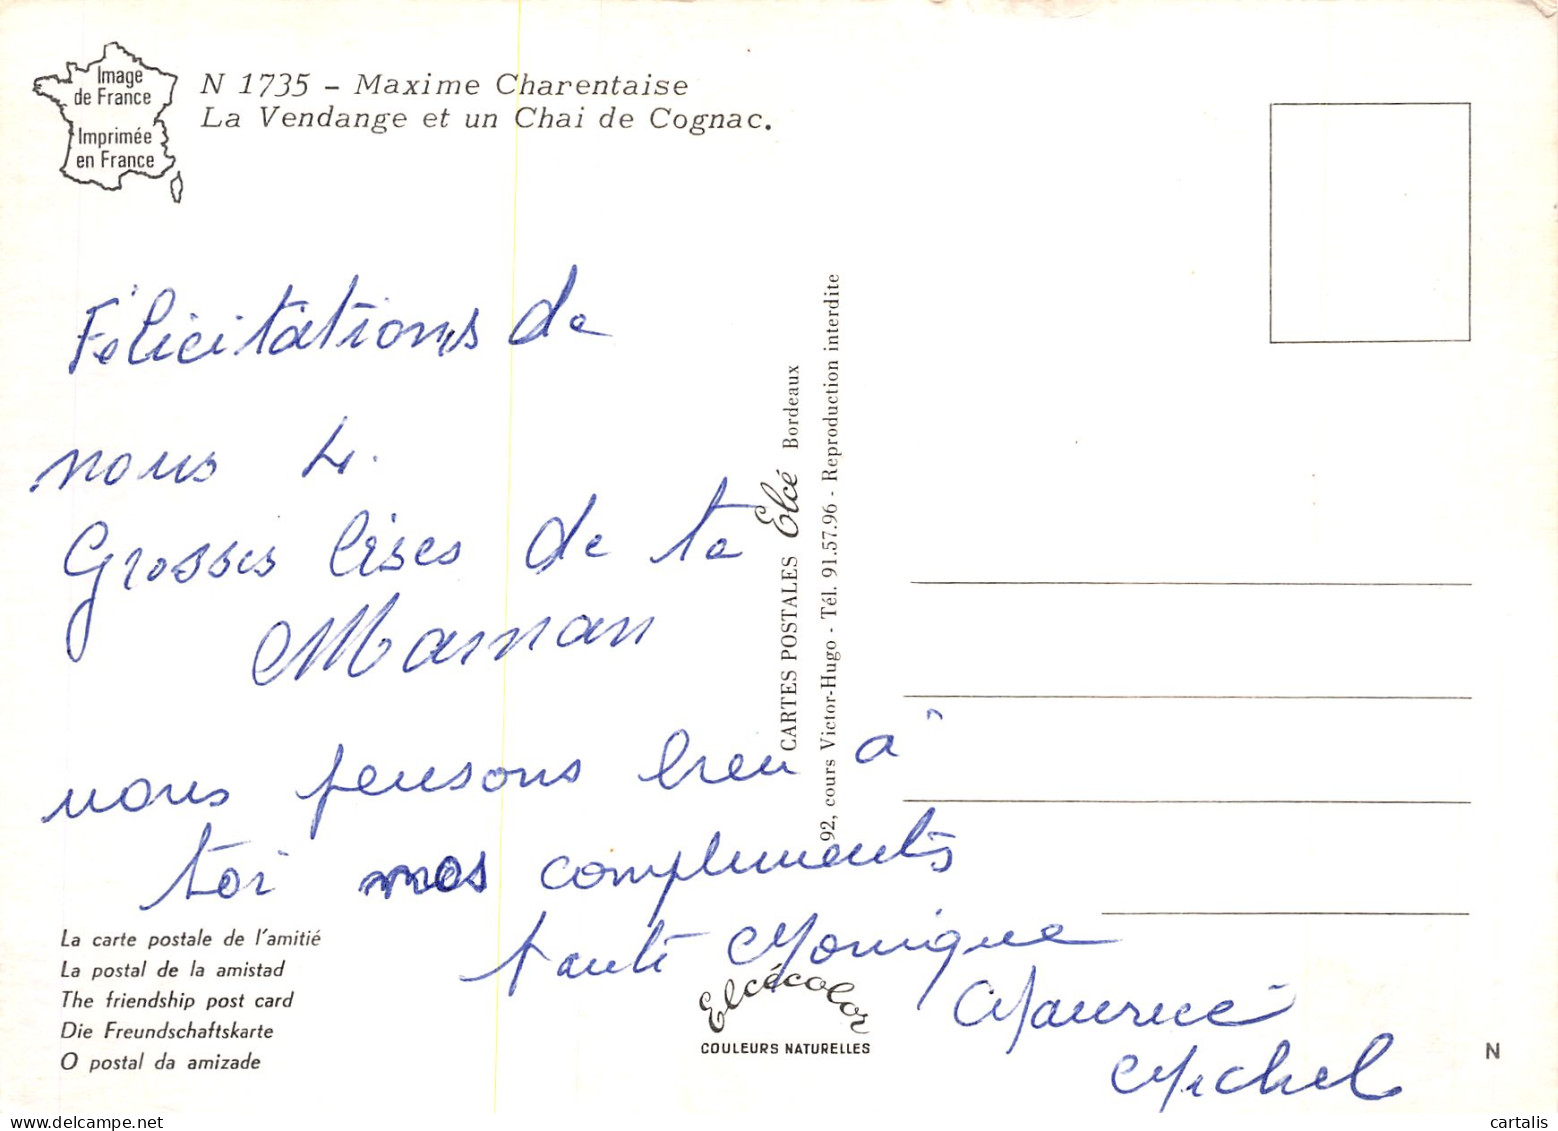 Image
de France
Imprimée
en France
N 1735 - Maxime Charentaise
La Vendange et un Chai de Cognac.
Félicitations de
nous 4.
Grosses bises de ta
Maman
nous pensons bien à
toi nos compliments
tante Monique
Maurice
Michel
CARTES POSTALES Elcé Bordeaux
92, cours Victor-Hugo - Tél. 91.57.96 - Reproduction interdite
La carte postale de l'amitié
La postal de la amistad
The friendship post card
Die Freundschaftskarte
O postal da amizade
Elcécolor
COULEURS NATURELLES
N
cartalis